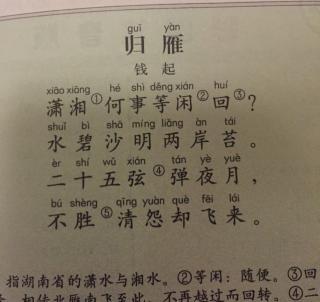 guī yàn
归雁
钱起
xiāo xiāng hé shì děng xián huí
潇湘①何事等闲②回③?
shuǐ bì shā míng liǎng àn tái
水碧沙明两岸苔。
èr shí wǔ xián tán yè yuè
二十五弦④弹夜月,
bú shèng qīng yuàn què fēi lái
不胜⑤清怨却飞来。
指湖南省的潇水与湘水。②等闲:随便。③回
相传北雁南飞至此,不再越过而回转。④二